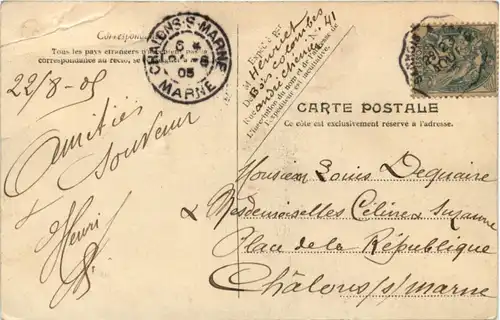 Correspondance
Tous les pays étrangers n'acceptent pas la
correspondance au recto, se
CHALONS-S-MARNE
6
05
MARNE
22/8-05
Amitiés
Souvenir
Henri
Expédié par
M Henriet
D Bois colombes
Rue andré chenier N° 41
L'inscription du nom et de l'adresse de
l'expéditeur est facultative.
CARTE POSTALE
Ce côté est exclusivement réservé à l'adresse.
Monsieur Louis Dequaire
& Mesdemoiselles Céline & Suzanne
Place de la République
Châlons s/ marne